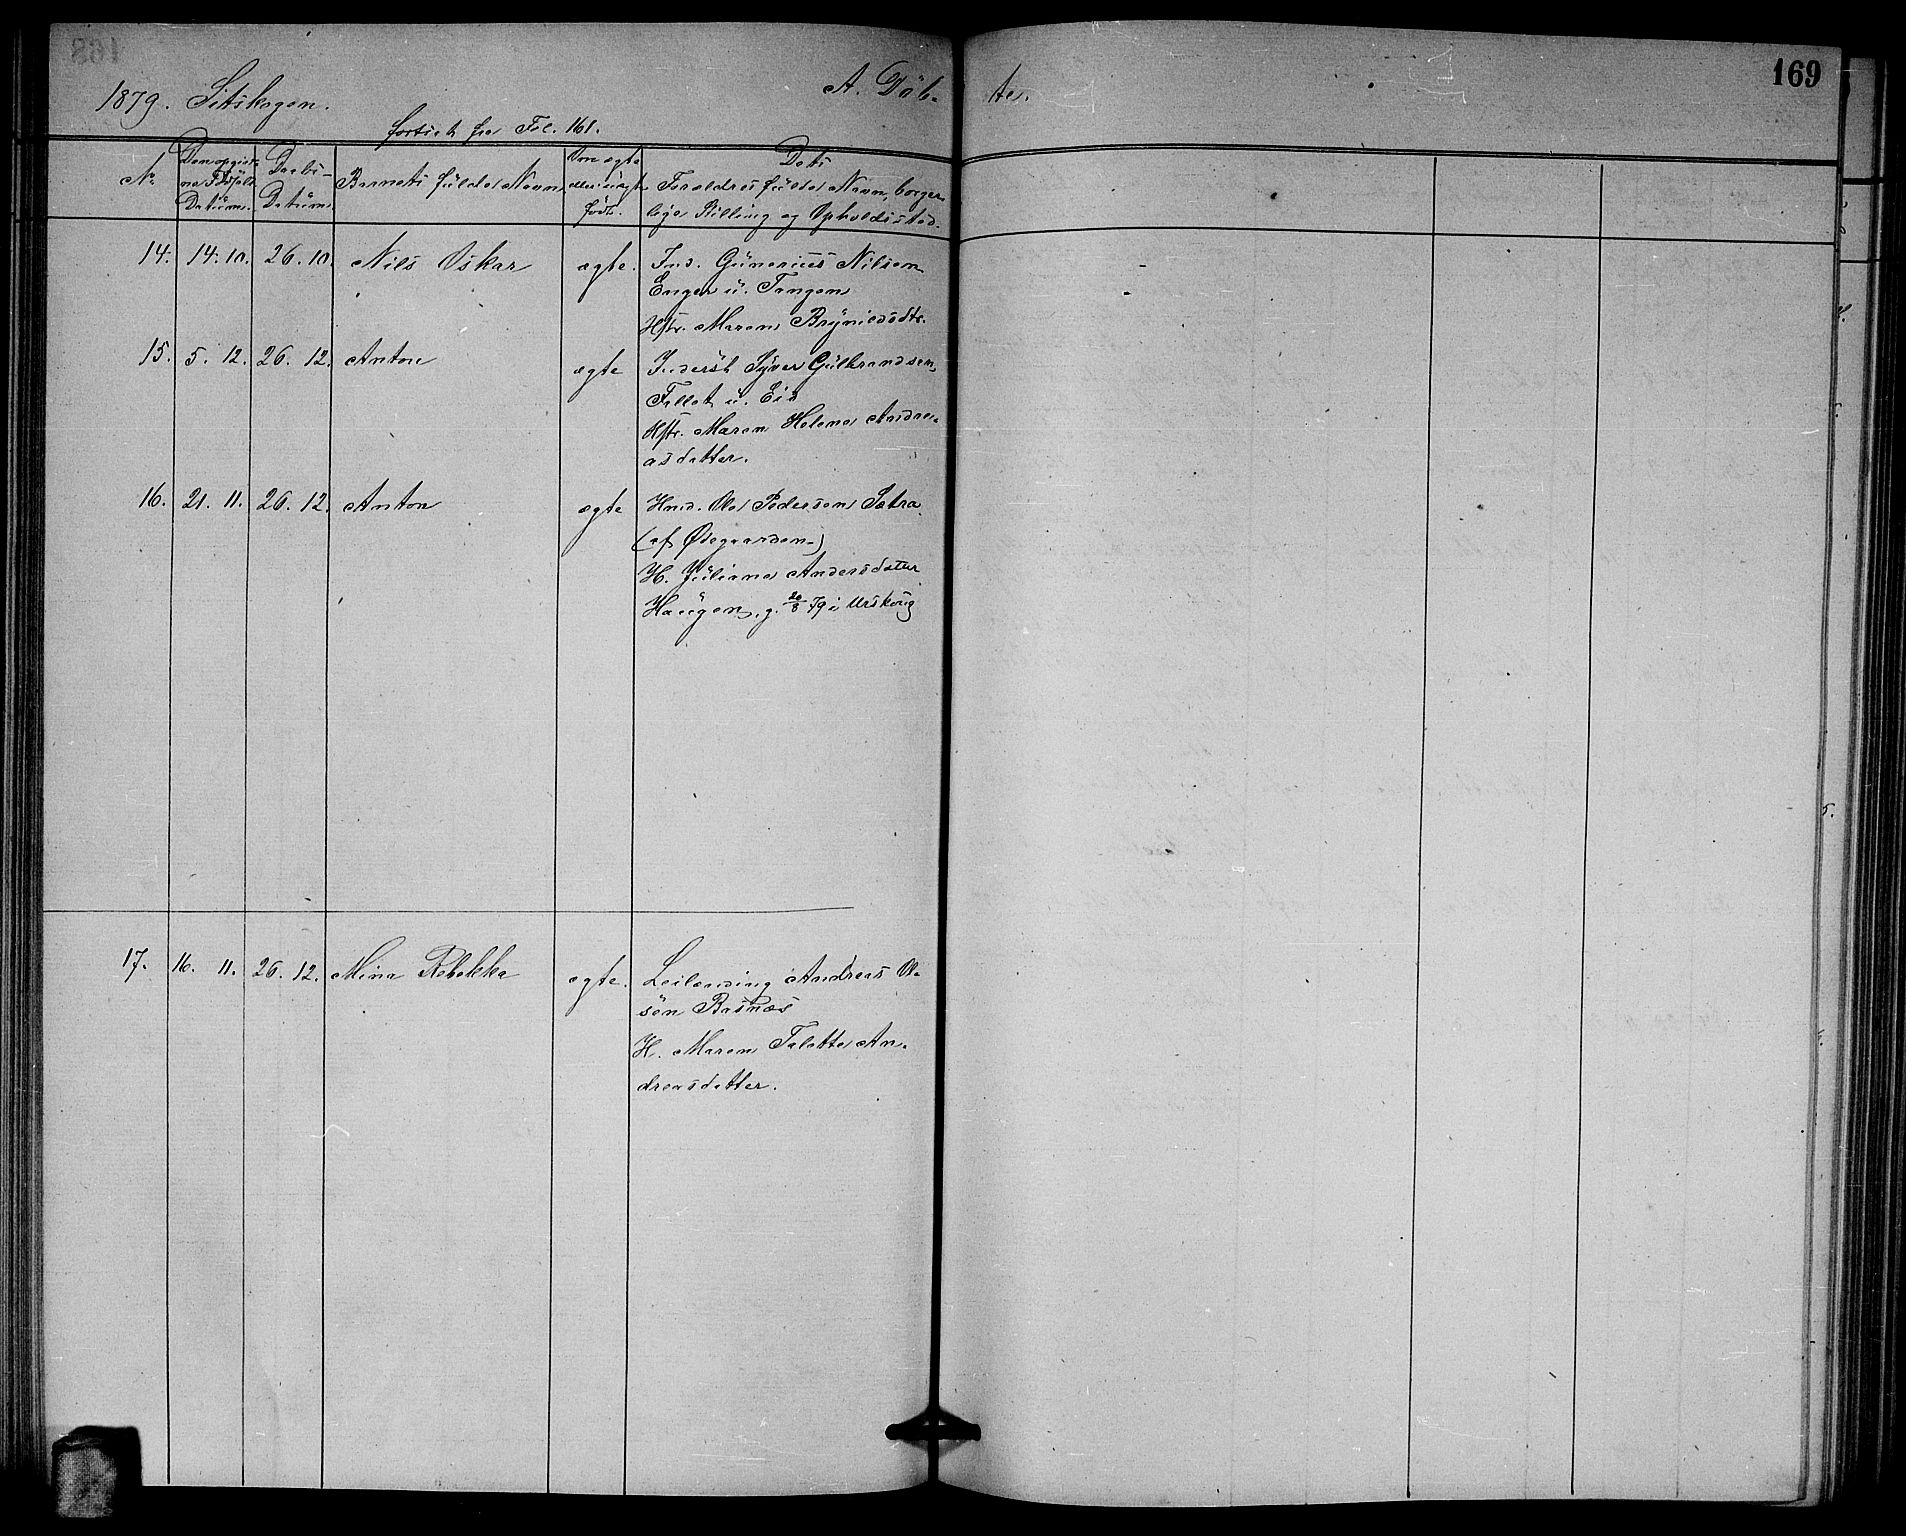 169
1879. Sitskogen. A. Döb- te.
fortsat fra Fol. 161.
No
Den opgivne Fødsels Datum.
Daabs-Datum.
Barnets fulde Navn
Om ægte eller uægte født.
Dets Forældres fulde Navn, borgerlige Stilling og Opholdssted.
14. 14. 10. 26. 10. Nils Oskar ægte. Ind. Gunerius Nilsen
Enger u. Tangen
Hstr. Maren Brynildsdtr.
15. 5. 12. 26. 12. Anton ægte Inderst Syver Gulbrandsen
Fallet u. Eid
Kstr. Maren Helene Andre-
asdatter.
16. 21. 11. 26. 12. Anton ægte Hmd. Ole Pedersen Sætra
(af Ødegaarden)
H. Juliane Andersdatter
Haugen, g. 20/8 79 i Urskoug
17. 16. 11. 26. 12. Mina Rebekka ægte. Leilænding Andreas Ol-
sen Basnæs
H. Maren Talette An-
dreasdatter.